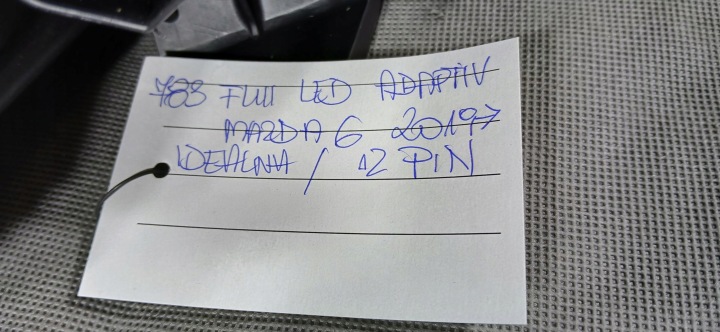 783 FULL LED ADAPTIV
MAZDA 6 20197
IDEALNA / 12 PIN